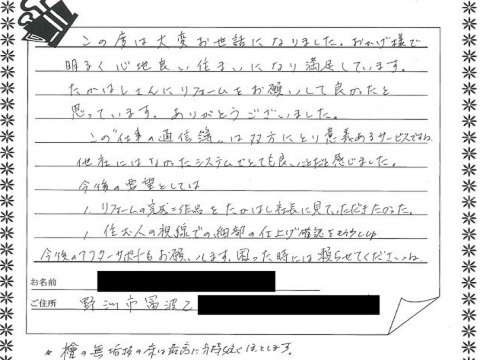 この度は大変お世話になりました。おかげ様で
明るく心地良い住まいになり満足しています。
たかはしさんにリフォームをお願いして良かったと
思っています。ありがとうございました。
この"仕事の通信簿"は双方にとり意義あるサービスですね
他社にはなかったシステムでとても良いことだと感じました。
今後の要望としては
1. リフォームの完成=作品をたかはし社長に見ていただきたかった。
1. 住む人の視線での細部の仕上げ確認を
今後のアフターサポートもお願いします。困った時には頼らせてくださいね。
お名前
ご住所 野洲市冨波乙
* 檜の無垢板の床は最高に気持よくほっとします。